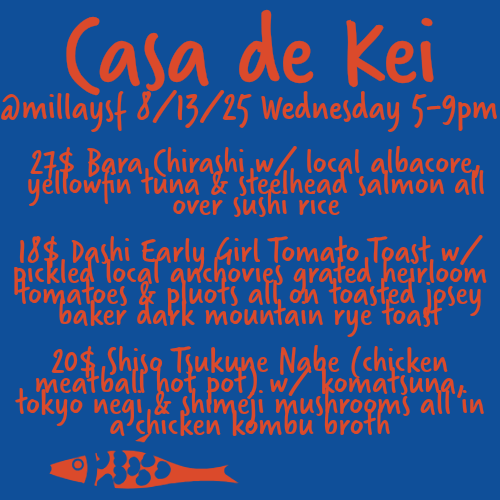 Casa de Kei
@millaysf 8/13/25 Wednesday 5-9pm
27$ Bara Chirashi w/ local albacore,
yellowfin tuna & steelhead salmon all
over sushi rice
18$ Dashi Early Girl Tomato Toast w/
pickled local anchovies grated heirloom
tomatoes & pluots all on toasted josey
baker dark mountain rye toast
20$ Shiso Tsukune Nabe (chicken
meatball hot pot) w/ komatsuna,
tokyo negi & shimeji mushrooms all in
a chicken kombu broth